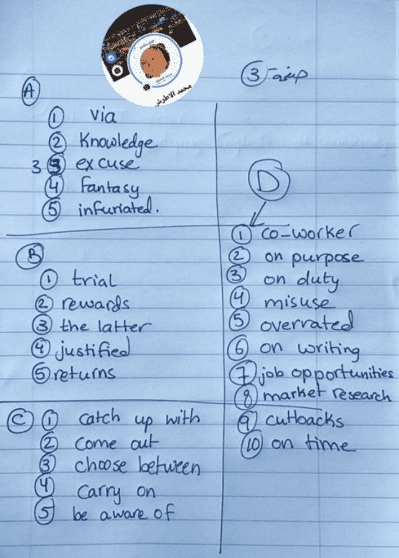 ③
A
① via
② Knowledge
3 ③ excuse
④ fantasy
⑤ infuriated.
B
① trial
② rewards
③ the latter
④ justified
⑤ returns
C
① catch up with
② come out
③ choose between
④ carry on
⑤ be aware of
D
① co-worker
② on purpose
③ on duty
④ misuse
⑤ overrated
⑥ on writing
⑦ job opportunities
⑧ market research
⑨ cutbacks
⑩ on time